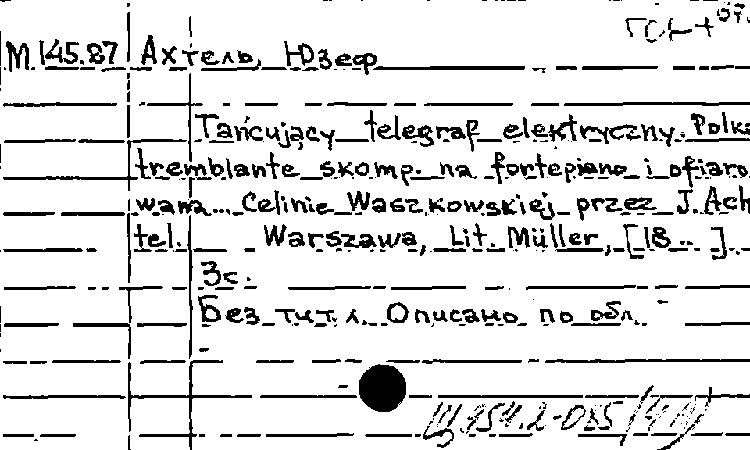 М 145.87 Ахтель, Юзеф
Tańcujący telegraf elektryczny. Polka
tremblante skomp. na fortepiano i ofiaro
wana... Celinie Waszkowskiej przez J. Ach
tel. Warszawa, Lit. Müller, [18.. ].
3с.
Без тит. л. Описано по обл.
Щ 454.2-085 (4 П)